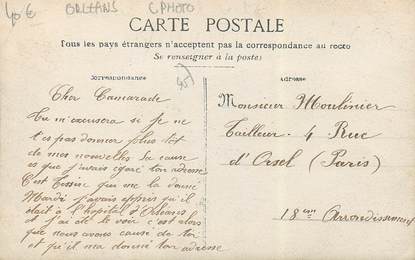 40 € ORLEANS C.PHOTO
CARTE POSTALE
Tous les pays étrangers n'acceptent pas la correspondance au recto
Se renseigner à la poste
Correspondance
Adresse
45
Cher Camarade
Tu m'excusera si je ne
t'es pas donner plus tot
de mes nouvelles la cause
es que j'avais égaré ton adresse
C'est Tessier que me la donné
Mardi j'avais appris qu'il
était à l'hopital d'Orléans
et j'ai été le voir c'est alors
que nous avons causé de toi
et qu'il ma donné ton adresse
Monsieur Moulinier
Tailleur 4 Rue
d'Orsel (Paris)
18em Arrondissement